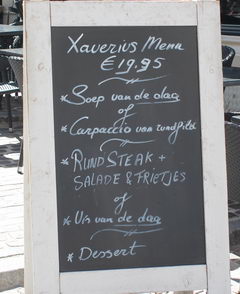 Xaverius Menu
€19,95
* Soep van de dag
of
* Carpaccio van rundfilet
* RUNDSTEAK +
SALADE & FRIETJES
of
* Vis van de dag
* Dessert